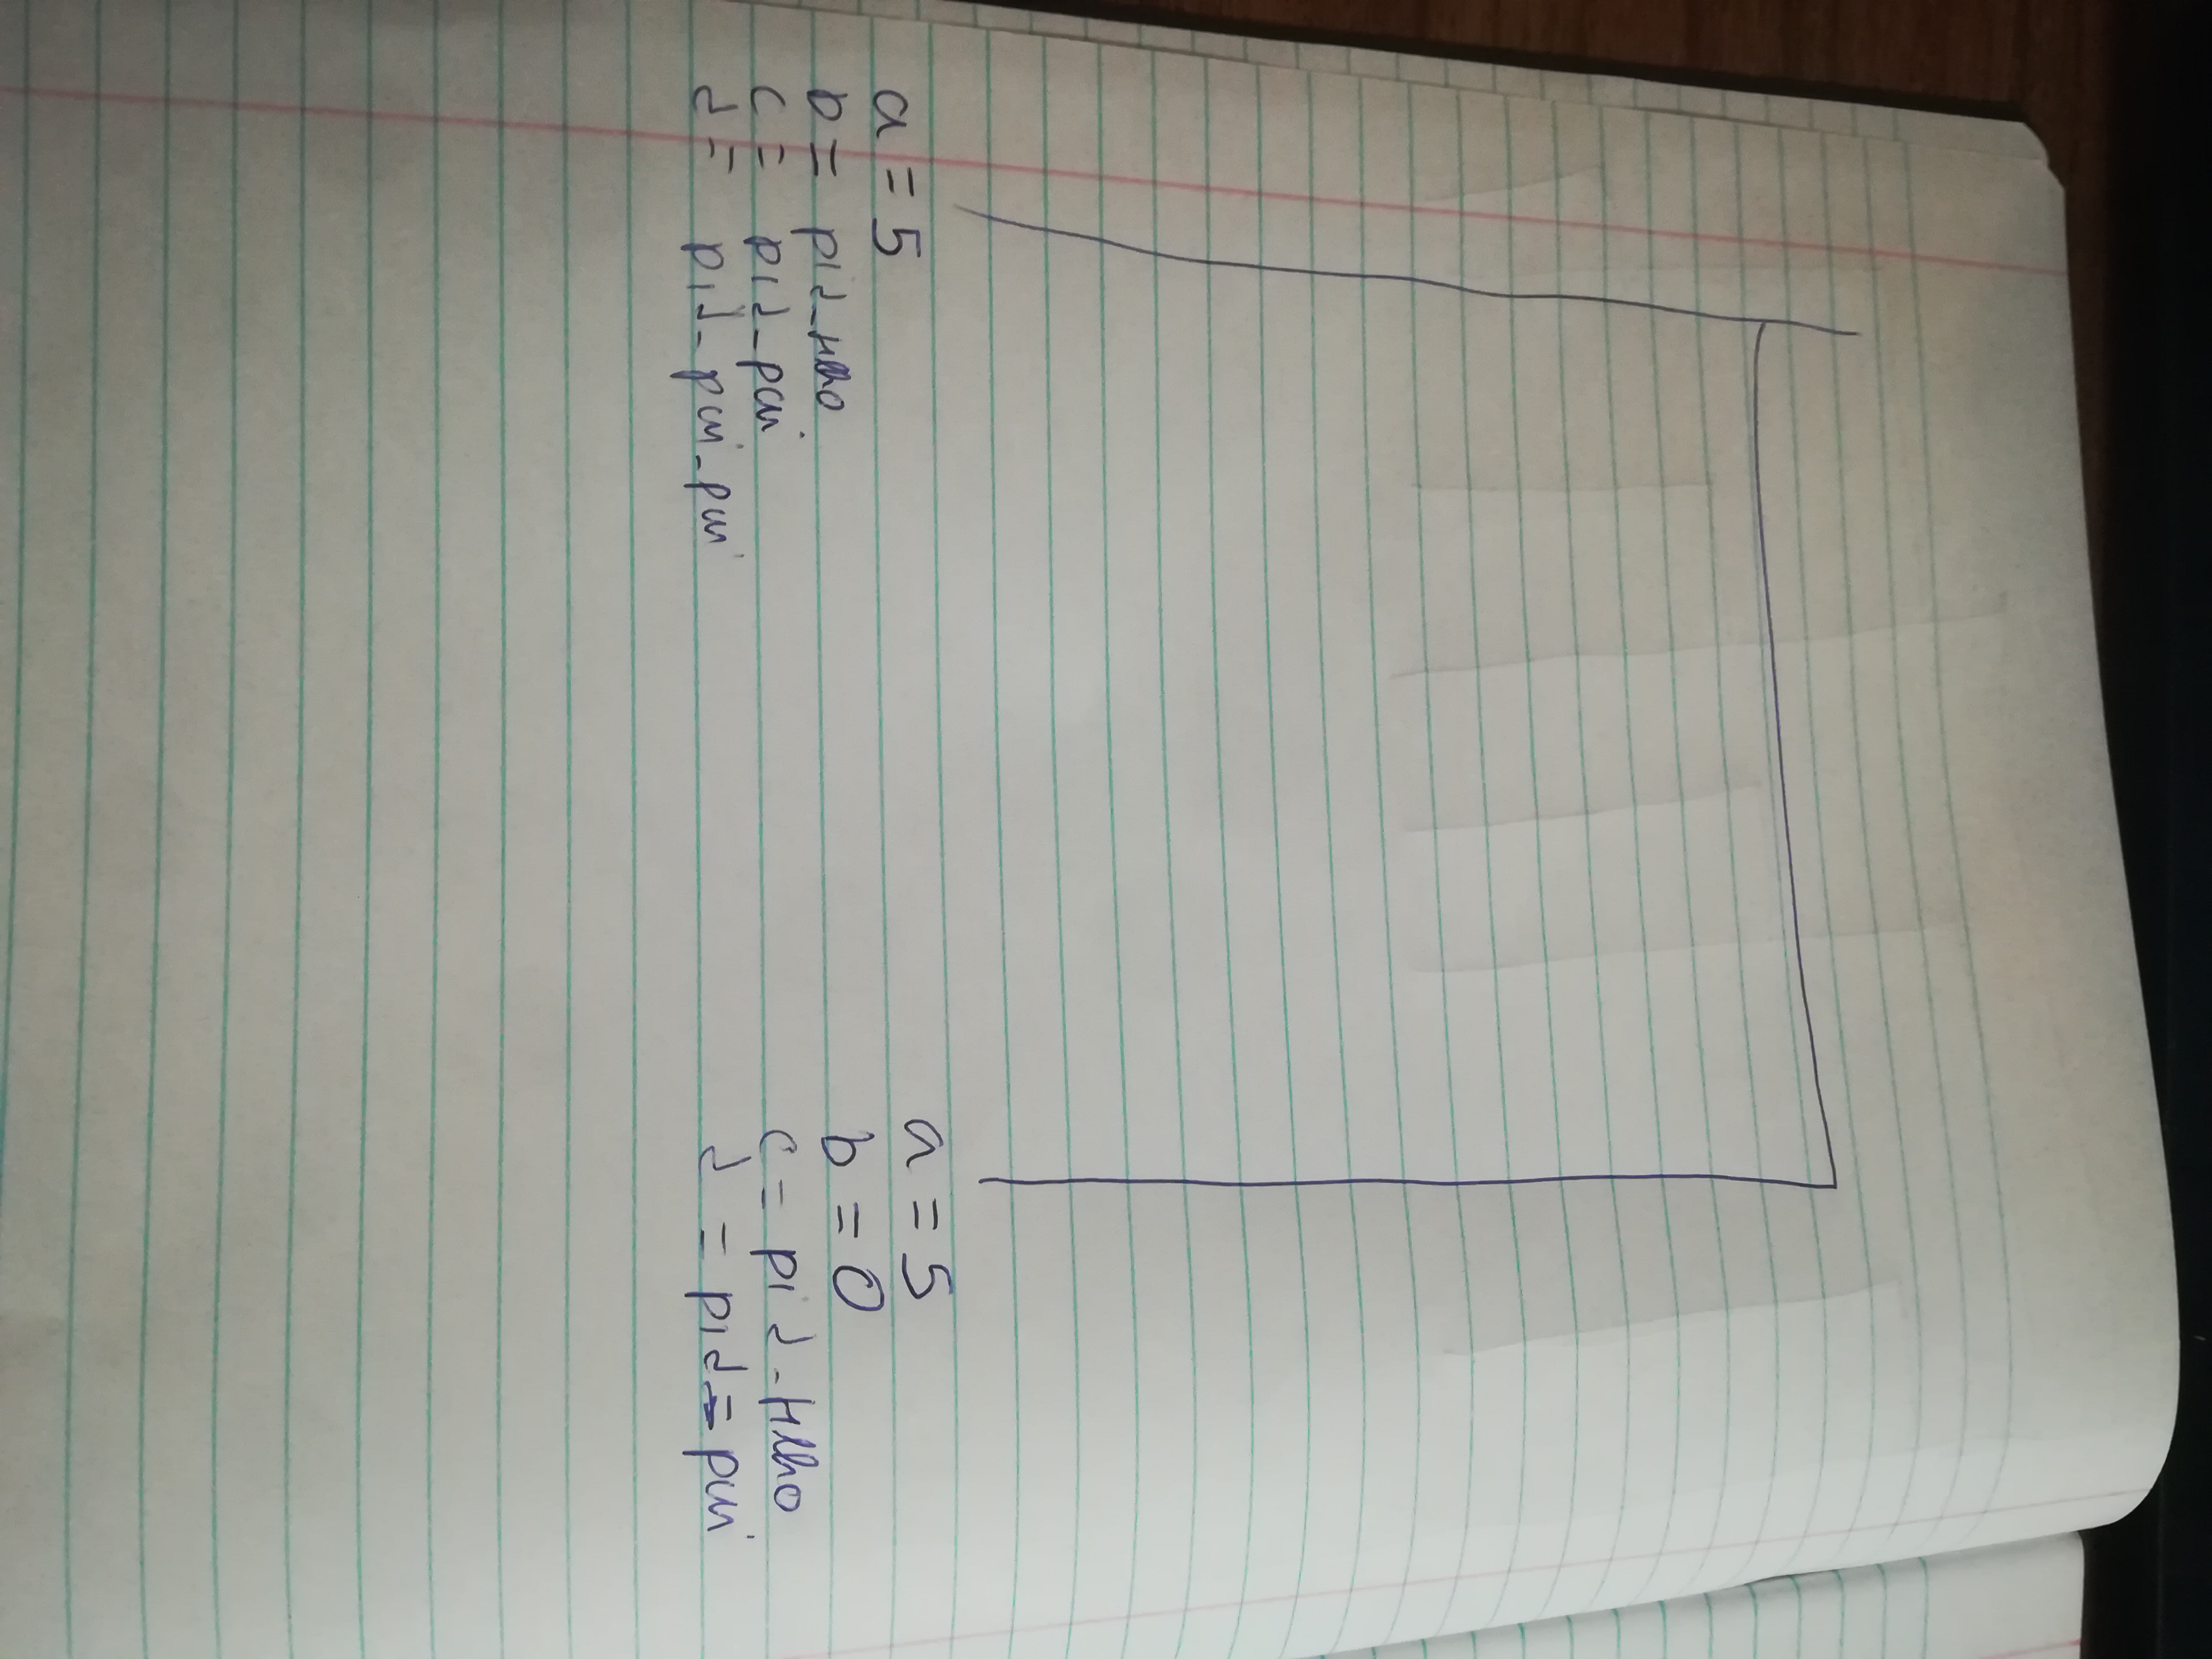 a = 5
b = pid_filho
c = pid_pai
d = pid_pai_pai
a = 5
b = 0
c = pid_filho
d = pid_pai